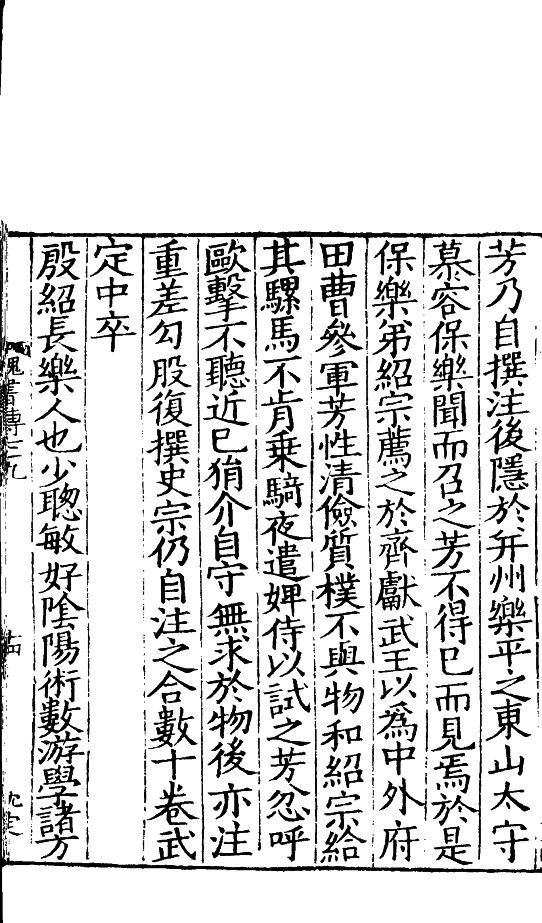 芳乃自撰注後隱於并州樂平之東山太守
慕容保樂聞而召之芳不得已而見焉於是
保樂弟紹宗薦之於齊獻武王以為中外府
田曹參軍芳性清儉質樸不與物和紹宗給
其騾馬不肯乗騎夜遣婢侍以試之芳忿呼
歐擊不聽近已狷介自守無求於物後亦注
重差勾股復撰史宗仍自注之合數十卷武
定中卒
殷紹長樂人也少聰敏好陰陽術數游學諸方
魏書傳七十九
十四